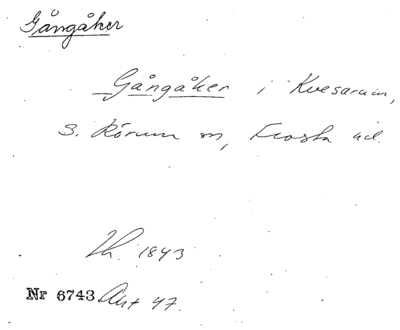 Gångåker
Gångåker i Kvesarum,
S. Rörum sn, Frosta hd.
1843
Nr 6743 47.